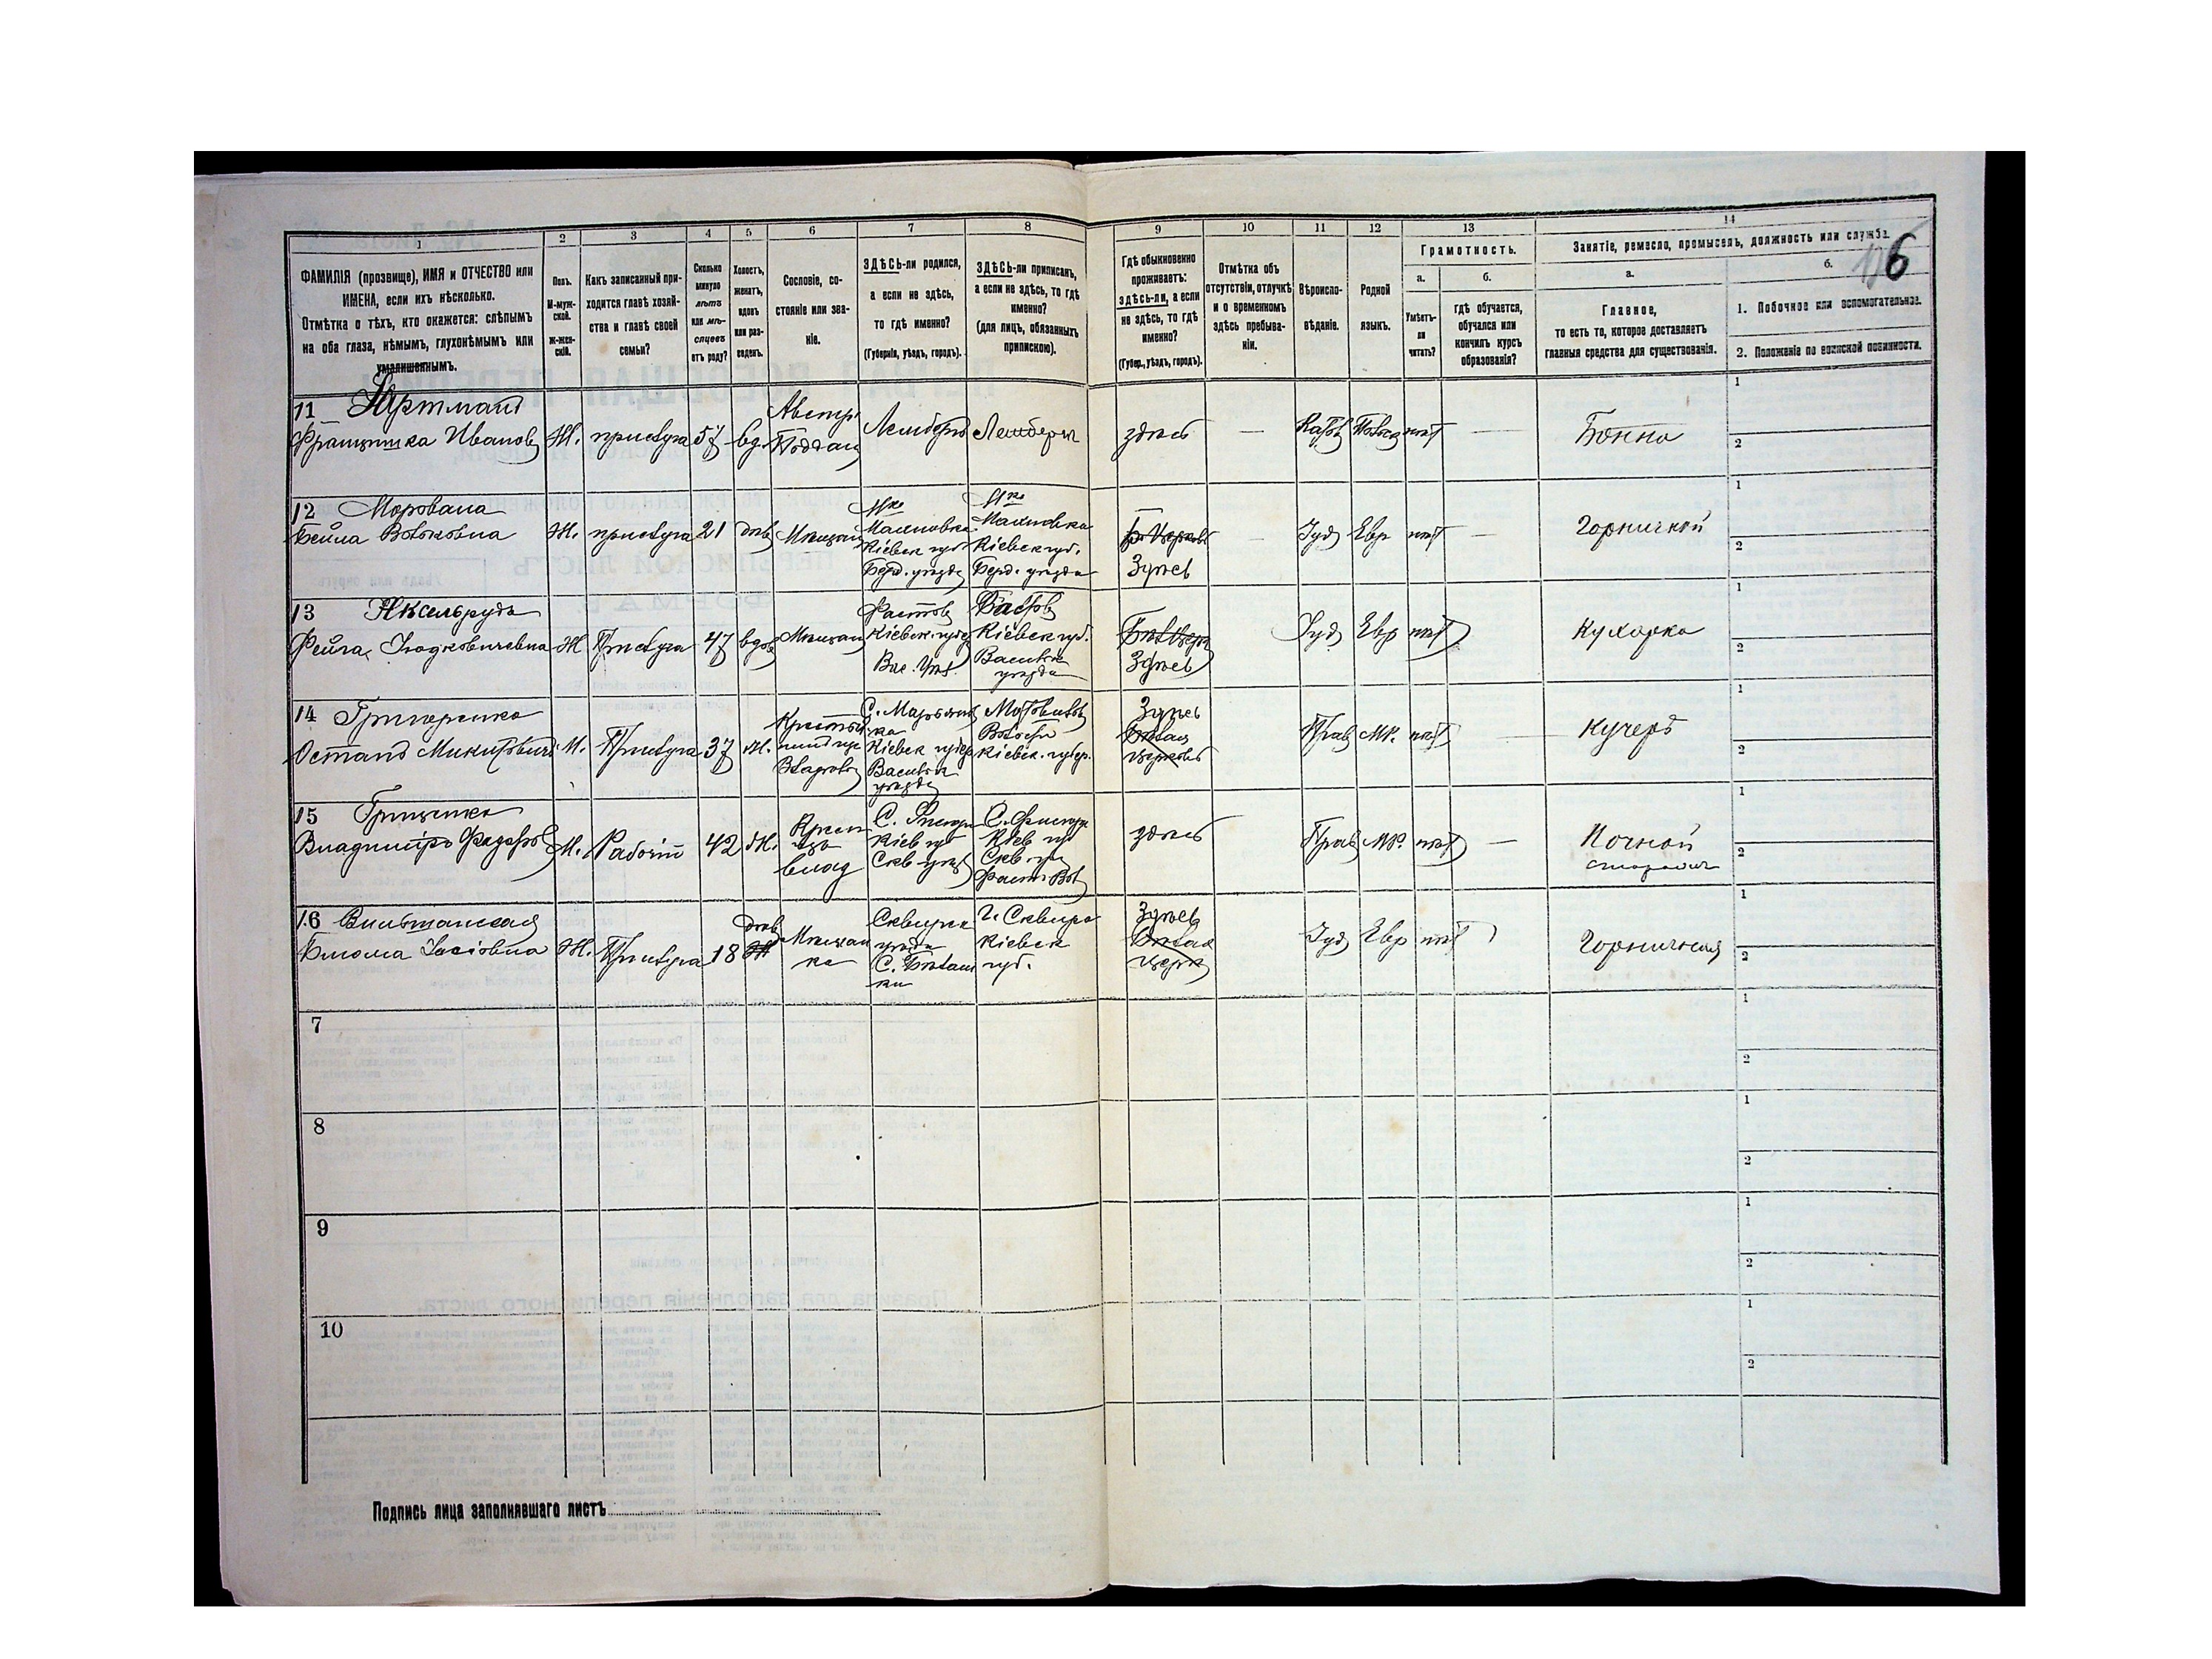 6
1 2 3 4 5 6 7 8 9 10 11 12 13 14
ФАМИЛІЯ (прозвище), ИМЯ и ОТЧЕСТВО или
ИМЕНА, если ихъ нѣсколько.
Отмѣтка о тѣхъ, кто окажется: слѣпымъ
на оба глаза, нѣмымъ, глухонѣмымъ или
умалишеннымъ.
Полъ.
М-муж-
ской.
Ж-жен-
скій.
Какъ записанный при-
ходится главѣ хозяй-
ства и главѣ своей
семьи?
Сколько
минуло
лѣтъ
или мѣ-
сяцевъ
отъ роду?
Холостъ,
женатъ,
вдовъ
или раз-
веденъ.
Сословіе, со-
стояніе или зва-
ніе.
ЗДѢСЬ-ли родился,
а если не здѣсь,
то гдѣ именно?
(Губернія, уѣздъ, городъ).
ЗДѢСЬ-ли приписанъ,
а если не здѣсь, то гдѣ
именно?
(для лицъ, обязанныхъ
припискою).
Гдѣ обыкновенно
проживаетъ:
здѣсь-ли, а если
не здѣсь, то гдѣ
именно?
(Губер., уѣздъ, городъ).
Отмѣтка объ
отсутствіи, отлучкѣ
и о временномъ
здѣсь пребыва-
ніи.
Вѣроиспо-
вѣданіе.
Родной
языкъ.
Грамотность.
а.
Умѣетъ-
ли
читать?
б.
гдѣ обучается,
обучался или
кончилъ курсъ
образованія?
Занятіе, ремесло, промыселъ, должность или служба.
а.
Главное,
то есть то, которое доставляетъ
главныя средства для существованія.
б.
1. Побочное или вспомогательное.
2. Положеніе по воинской повинности.
11
Францишка Иванов
Ж. прислуга 57 вд.
Австр.
Поддан
Лембергъ Лембергъ здѣсь — Катол Польск нѣт — Бонна
1
2
12
Бейла Вольковна
Ж. прислуга 21 дѣв Мѣщан
Мко
Махновка
Кіевск губ
Берд. уѣзда
Мко
Махновка
Кіевск губ.
Берд. уѣзда
Здѣсь
Іуд Евр нѣт — Горничной
1
2
13
Фейга
Ж Прислуга 47 вдов Мѣщан
Фастов
Кіевск. губ
Вас. Уѣз.
Фастов
Кіевск губ.
Васильк
уѣзда
Здѣсь
Іуд Евр нѣт Кухарка
1
2
14
Остапъ Микитовичъ
М. Прислуга 37 ж.
Кіевск губер
Васильк
уѣзда
Волости
Кіевск. губер.
Здѣсь
Прав Мр. нѣт — Кучеръ
1
2
15 Грищенко
Владиміръ Федоров
М. Рабочій 42 ж.
Кіев губ
Скв уѣз
Кіев губ
здѣсь Прав Мр. нѣт — Ночной
сторожъ
1
2
16
Ж. Прислуга 18
дѣв
Мѣщан
ка
Сквирск
уѣзда
Г. Сквира
Кіевск
губ.
Здѣсь
Іуд Евр нѣт Горничная
1
2
7
1
2
8
1
2
9
1
2
10
1
2
Подпись лица заполнявшаго листъ